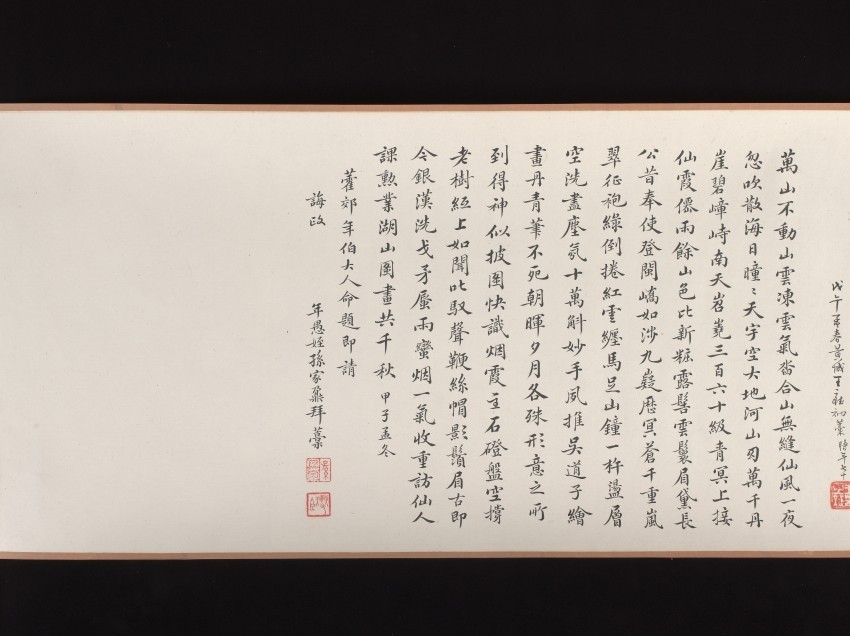 戊午孟春黃
萬山不動山雲凍雲氣沓合山無縫仙風一夜
忽吹散海日曈〻天宇空大地河山匀萬千丹
崖碧嶂峙南天岧嶤三百六十級青冥上接
仙霞僊雨餘山色比新粧露髻雲鬟眉黛長
公昔奉使登閩嶠如涉九嶷歷冥蒼千重嵐
翠征袍綠倒捲紅雲纏馬足山鐘一杵盪層
空洗盡塵氛十萬斛妙手夙推吳道子繪
畫丹青筆不死朝暉夕月各殊形意之所
到得神似披圖快識烟霞主石磴盤空撐
老樹絙上如聞叱馭聲鞭絲帽影鬚眉古即
今銀漢洗戈矛蜃雨蠻烟一氣收重訪仙人
課勲業湖山圖畫共千秋 甲子孟冬
藿郊年伯大人命題即請
誨政
年愚姪孫家鼐拜藳